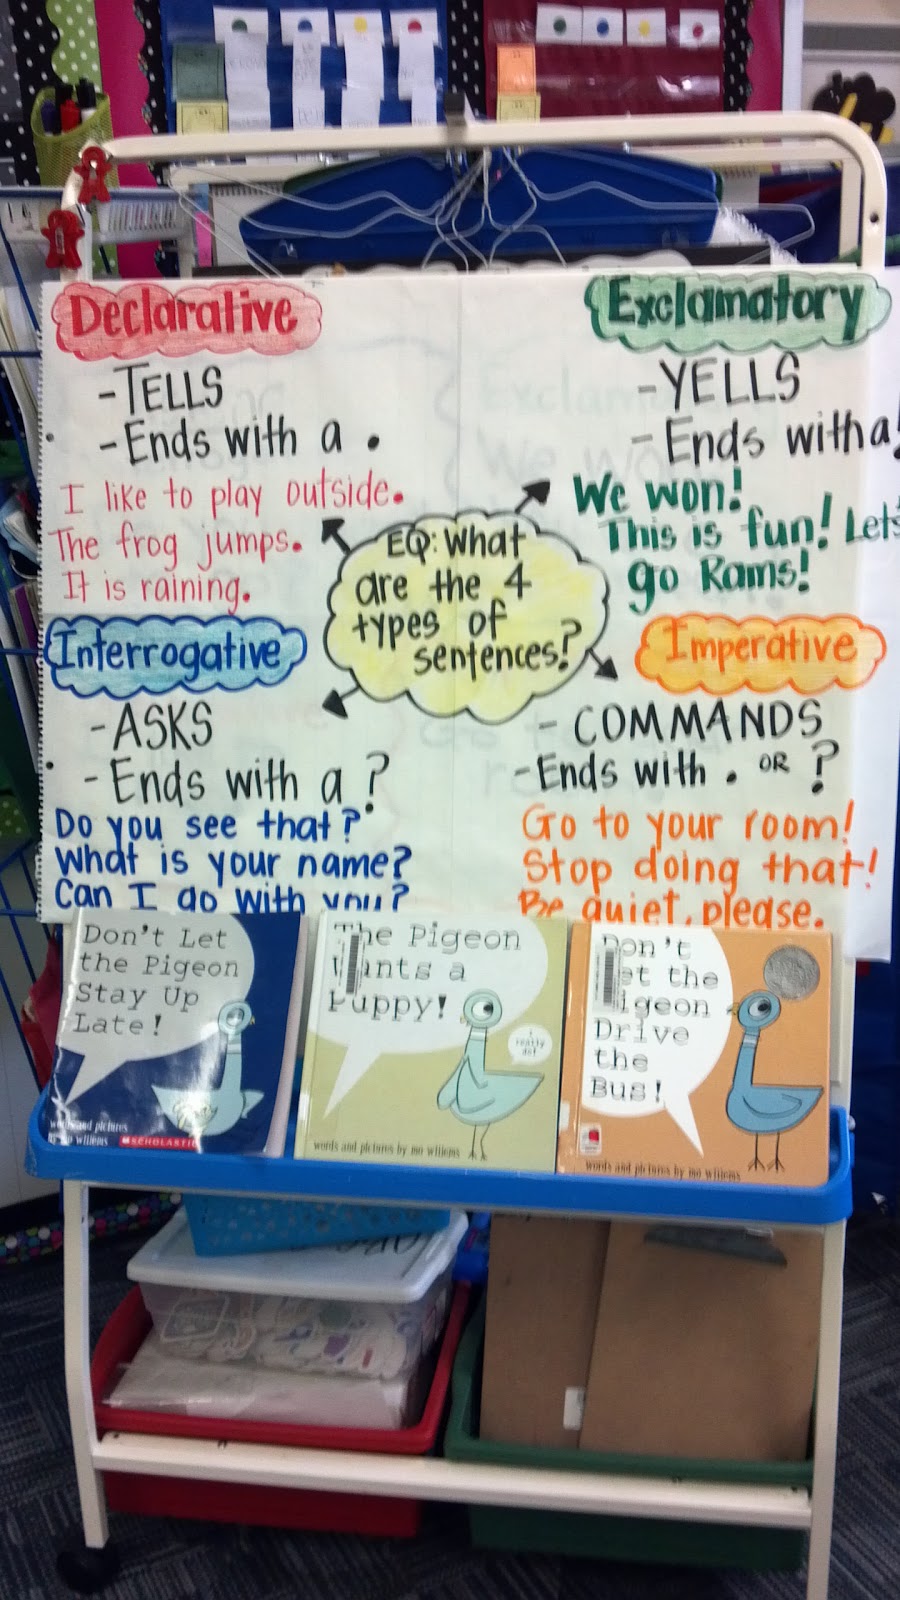 Declarative
-TELLS
-Ends with a .
I like to play outside.
The frog jumps.
It is raining.
Exclamatory
-YELLS
-Ends with a!
We won!
This is fun! Let's
go Rams!
EQ: What
are the 4
types of
sentences?
Interrogative
-ASKS
-Ends with a ?
Do you see that?
What is your name?
Can I go with you?
Imperative
- COMMANDS
-Ends with . OR ?
Go to your room!
Stop doing that!
Be quiet, please.
Don't Let
the Pigeon
Stay Up
Late!
words and pictures
by mo willems
SCHOLASTIC
The Pigeon
Wants a
Puppy!
I
really
do!
words and pictures by mo willems
Don't
Let the
Pigeon
Drive
the
Bus!
words and pictures by mo willems